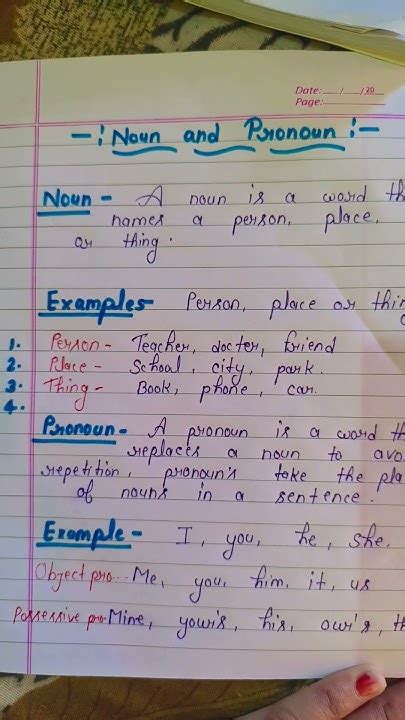 Date: __/__/20
Page:
-! Noun and Pronoun !-
Noun - A noun is a word
names a person, place,
or thing.
Examples - Person, place or
1. Person - Teacher, docter, friend
2. Place - School, city, park.
3. Thing - Book, phone, car.
4.
Pronoun - A pronoun is a word
replaces a noun to
repetition, pronoun's take the
of nouns in a sentence.
Example - I, you, he, she.
Object pro... Me, you, him, it, us
Possessive pro. Mine, your's, his, our's,